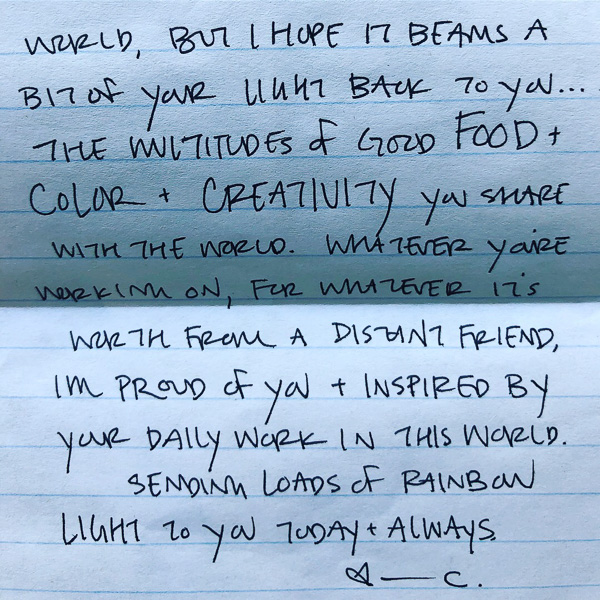 WORLD, BUT I HOPE IT BEAMS A
BIT OF YOUR LIGHT BACK TO YOU...
THE MULTITUDES OF GOOD FOOD +
COLOR + CREATIVITY YOU SHARE
WITH THE WORLD. WHATEVER YOU'RE
WORKING ON, FOR WHATEVER IT'S
WORTH FROM A DISTANT FRIEND,
IM PROUD OF YOU + INSPIRED BY
YOUR DAILY WORK IN THIS WORLD.
SENDING LOADS OF RAINBOW
LIGHT TO YOU TODAY + ALWAYS.
— C.